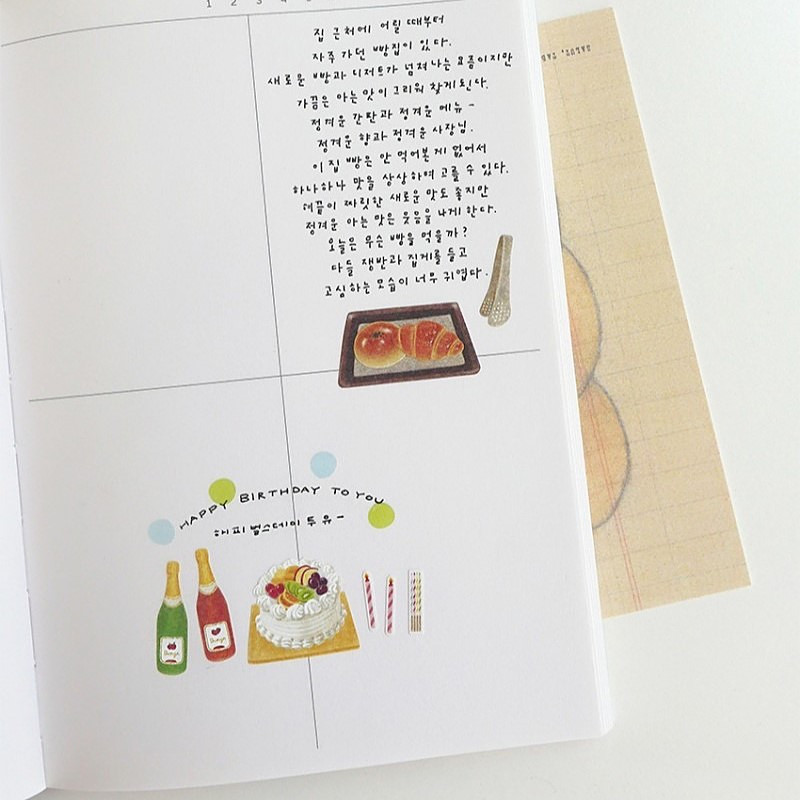 1 2 3 4
집 근처에 어릴 때부터
자주 가던 빵집이 있다.
새로운 빵과 디저트가 넘쳐나는 요즘이지만
가끔은 아는 맛이 그리워 찾게된다.
정겨운 간판과 정겨운 메뉴 -
정겨운 향과 정겨운 사장님.
이 집 빵은 안 먹어본 게 없어서
하나하나 맛을 상상하며 고를 수 있다.
혀끝이 짜릿한 새로운 맛도 좋지만
정겨운 아는 맛은 웃음을 나게 한다.
오늘은 무슨 빵을 먹을까?
다들 쟁반과 집게를 들고
고심하는 모습이 너무 귀엽다.
HAPPY BIRTHDAY TO YOU
해피 벌스데이 투 유 -